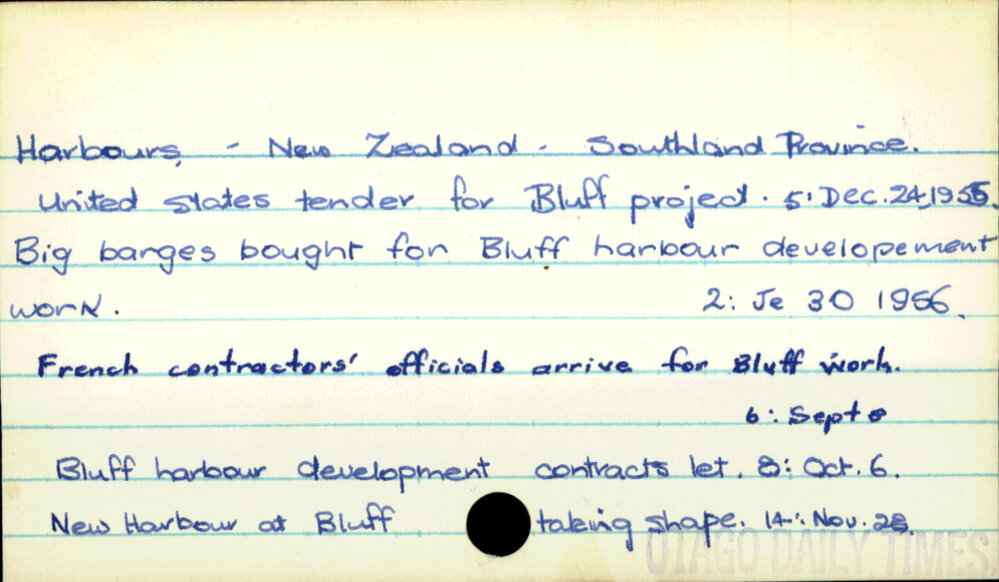 Harbours, - New Zealand - Southland Province.
United States tender for Bluff project. 5: Dec. 24, 1955.
Big barges bought for Bluff harbour developement
work. 2: Je 30 1956.
French contractors' officials arrive for Bluff work.
6: Sept 8
Bluff harbour development contracts let. 8: Oct. 6.
New Harbour at Bluff taking shape. 14: Nov. 28.
OTAGO DAILY TIMES.